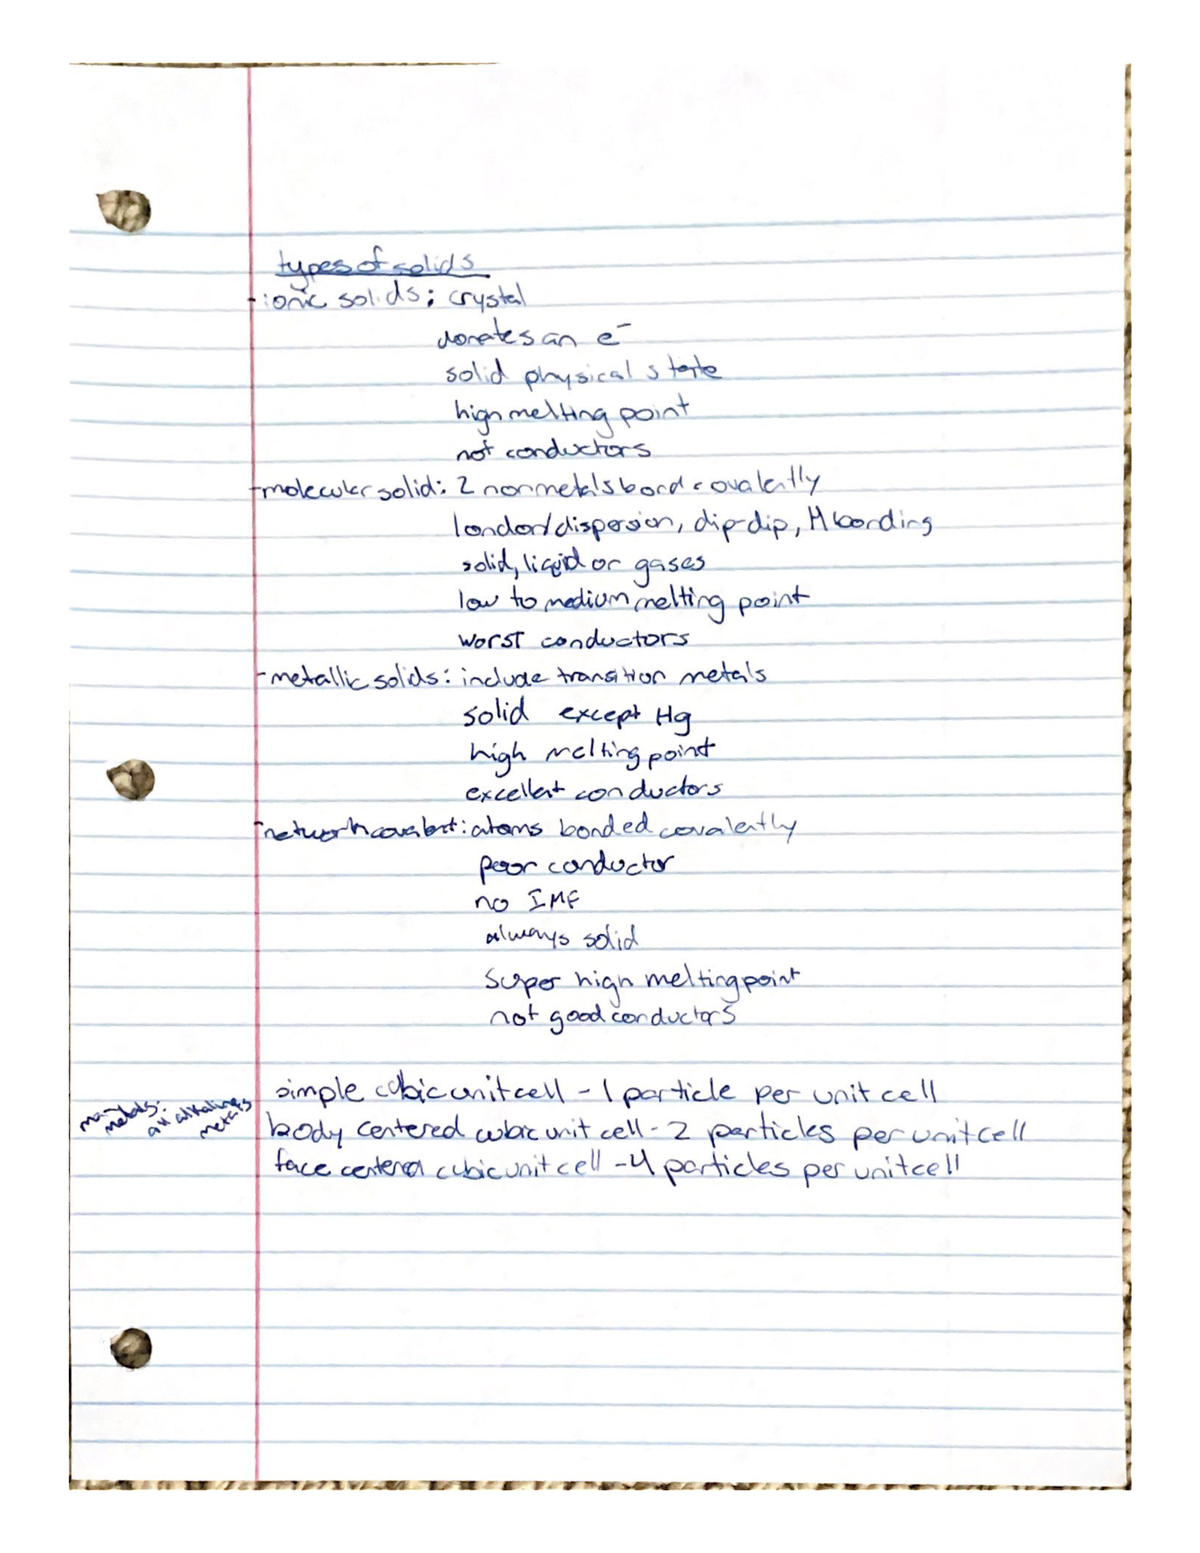 types of solids
- ionic solids: crystal
donates an e⁻
solid physical state
high melting point
not conductors
- molecular solid: 2 nonmetals bond covalently
london/dispersion, dip-dip, H bonding
solid, liquid or gases
low to medium melting point
worst conductors
- metallic solids: include transition metals
solid except Hg
high melting point
excellent conductors
- network covalent: atoms bonded covalently
poor conductor
no IMF
always solid
super high melting point
not good conductors
simple cubic unit cell - 1 particle per unit cell
many metals: all alkaline metals
body centered cubic unit cell - 2 particles per unit cell
face centered cubic unit cell - 4 particles per unit cell